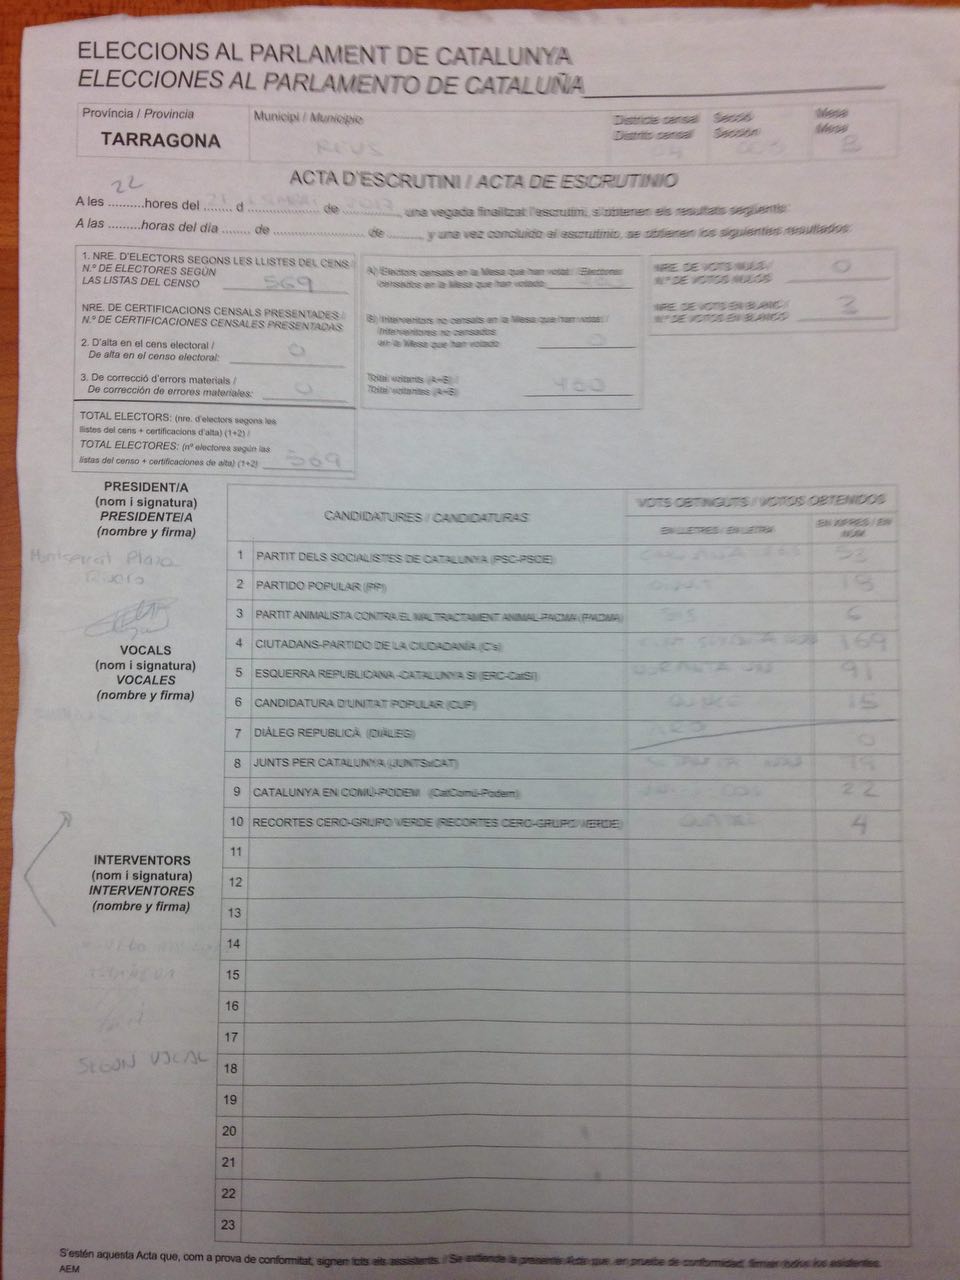 ELECCIONS AL PARLAMENT DE CATALUNYA
ELECCIONES AL PARLAMENTO DE CATALUÑA
Província / Provincia
TARRAGONA
Municipi / Municipio
REUS
Districte censal
Distrito censal
04
Secció
Sección
Mesa
Mesa
B
ACTA D'ESCRUTINI / ACTA DE ESCRUTINIO
A les ...22...hores del ....... d .................. de .............., una vegada finalitzat l'escrutini, s'obtenen els resultats següents:
A las .........horas del día ....... de .................. de ........, y una vez concluido el escrutinio, se obtienen los siguientes resultados:
1. NRE. D'ELECTORS SEGONS LES LLISTES DEL CENS /
N.º DE ELECTORES SEGÚN
LAS LISTAS DEL CENSO 569
NRE. DE CERTIFICACIONS CENSALS PRESENTADES /
N.º DE CERTIFICACIONES CENSALES PRESENTADAS
2. D'alta en el cens electoral /
De alta en el censo electoral: 0
3. De correcció d'errors materials /
De corrección de errores materiales: 0
TOTAL ELECTORS: (nre. d'electors segons les
llistes del cens + certificacions d'alta) (1+2) /
TOTAL ELECTORES: (nº electores según las
listas del censo + certificaciones de alta) (1+2) 569
A) Electors censats en la Mesa que han votat / Electores
censados en la Mesa que han votado
B) Interventors no censats en la Mesa que han votat /
Interventores no censados
en la Mesa que han votado 0
Total votants (A+B) /
Total votantes (A+B) 460
NRE. DE VOTS NULS /
N.º DE VOTOS NULOS 0
NRE. DE VOTS EN BLANC /
N.º DE VOTOS EN BLANCO 3
PRESIDENT/A
(nom i signatura)
PRESIDENTE/A
(nombre y firma)
Montserrat Plaza
VOCALS
(nom i signatura)
VOCALES
(nombre y firma)
INTERVENTORS
(nom i signatura)
INTERVENTORES
(nombre y firma)
SEGON VOCAL
CANDIDATURES / CANDIDATURAS
VOTS OBTINGUTS / VOTOS OBTENIDOS
EN LLETRES / EN LETRA
EN XIFRES / EN NÚM.
1 PARTIT DELS SOCIALISTES DE CATALUNYA (PSC-PSOE) 53
2 PARTIDO POPULAR (PP) 18
3 PARTIT ANIMALISTA CONTRA EL MALTRACTAMENT ANIMAL-PACMA (PACMA) SIS 6
4 CIUTADANS-PARTIDO DE LA CIUDADANÍA (C's) 169
5 ESQUERRA REPUBLICANA -CATALUNYA SÍ (ERC-CatSí) 91
6 CANDIDATURA D'UNITAT POPULAR (CUP) QUINZE 15
7 DIÀLEG REPUBLICÀ (DIÀLEG) 0
8 JUNTS PER CATALUNYA (JUNTSxCAT) 79
9 CATALUNYA EN COMÚ-PODEM (CatComú-Podem) 22
10 RECORTES CERO-GRUPO VERDE (RECORTES CERO-GRUPO VERDE) QUATRE 4
11
12
13
14
15
16
17
18
19
20
21
22
23
S'estén aquesta Acta que, com a prova de conformitat, signen tots els assistents. / Se extiende la presente Acta que, en prueba de conformidad, firman todos los asistentes.
AEM